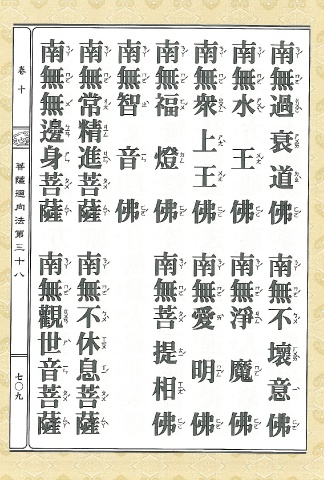 南無過衰道佛
南無不壞意佛
南無水王佛
南無淨魔佛
南無眾上王佛
南無愛明佛
南無福燈佛
南無菩提相佛
南無智音佛
南無常精進菩薩
南無不休息菩薩
南無無邊身菩薩
南無觀世音菩薩
卷十
菩薩迴向法第三十八
七〇九